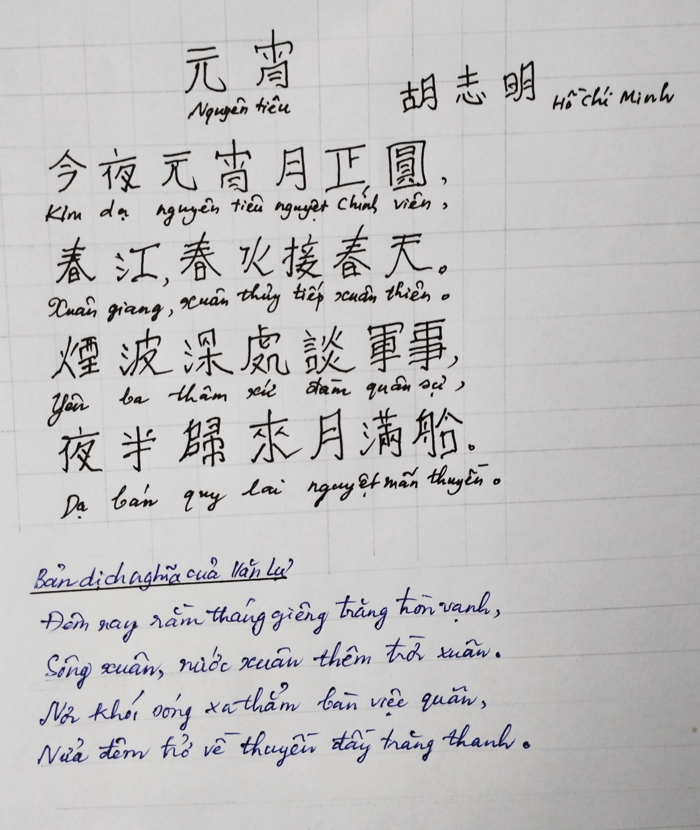 元宵
Nguyên tiêu
胡志明 Hồ Chí Minh
今夜元宵月正圓,
Kim dạ nguyên tiêu nguyệt chính viên,
春江,春水接春天。
Xuân giang, xuân thủy tiếp xuân thiên.
煙波深處談軍事,
Yên ba thâm xứ đàm quân sự,
夜半歸來月滿船。
Dạ bán quy lai nguyệt mãn thuyền.
Bản dịch nghĩa của Văn
Đêm nay rằm tháng giêng trăng tròn vạnh,
Sông xuân, nước xuân thêm trời xuân.
Nơi khói sóng xa thẳm bàn việc quân,
Nửa đêm trở về thuyền đầy trăng thanh.